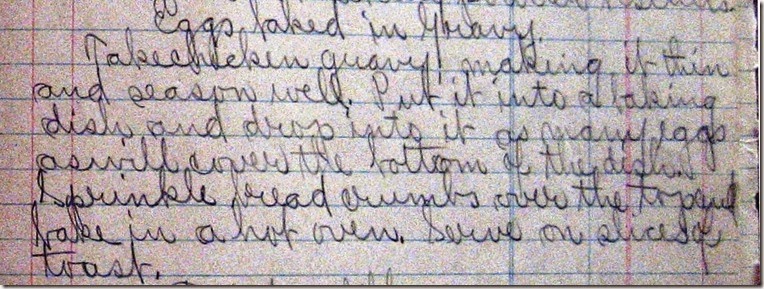 Eggs baked in Gravy.
Take chicken gravy, making it thin
and season well. Put it into a baking
dish and drop into it as many eggs
as will cover the bottom of the dish.
Sprinkle bread crumbs over the top and
bake in a hot oven. Serve on slices of
toast.